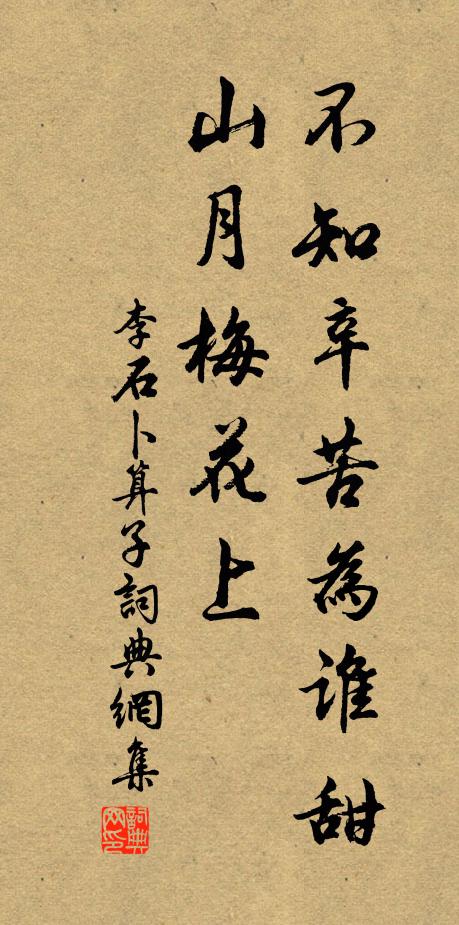 不知辛苦為誰甜
山月梅花上
李石卜算子詞典網集
詞典
网印